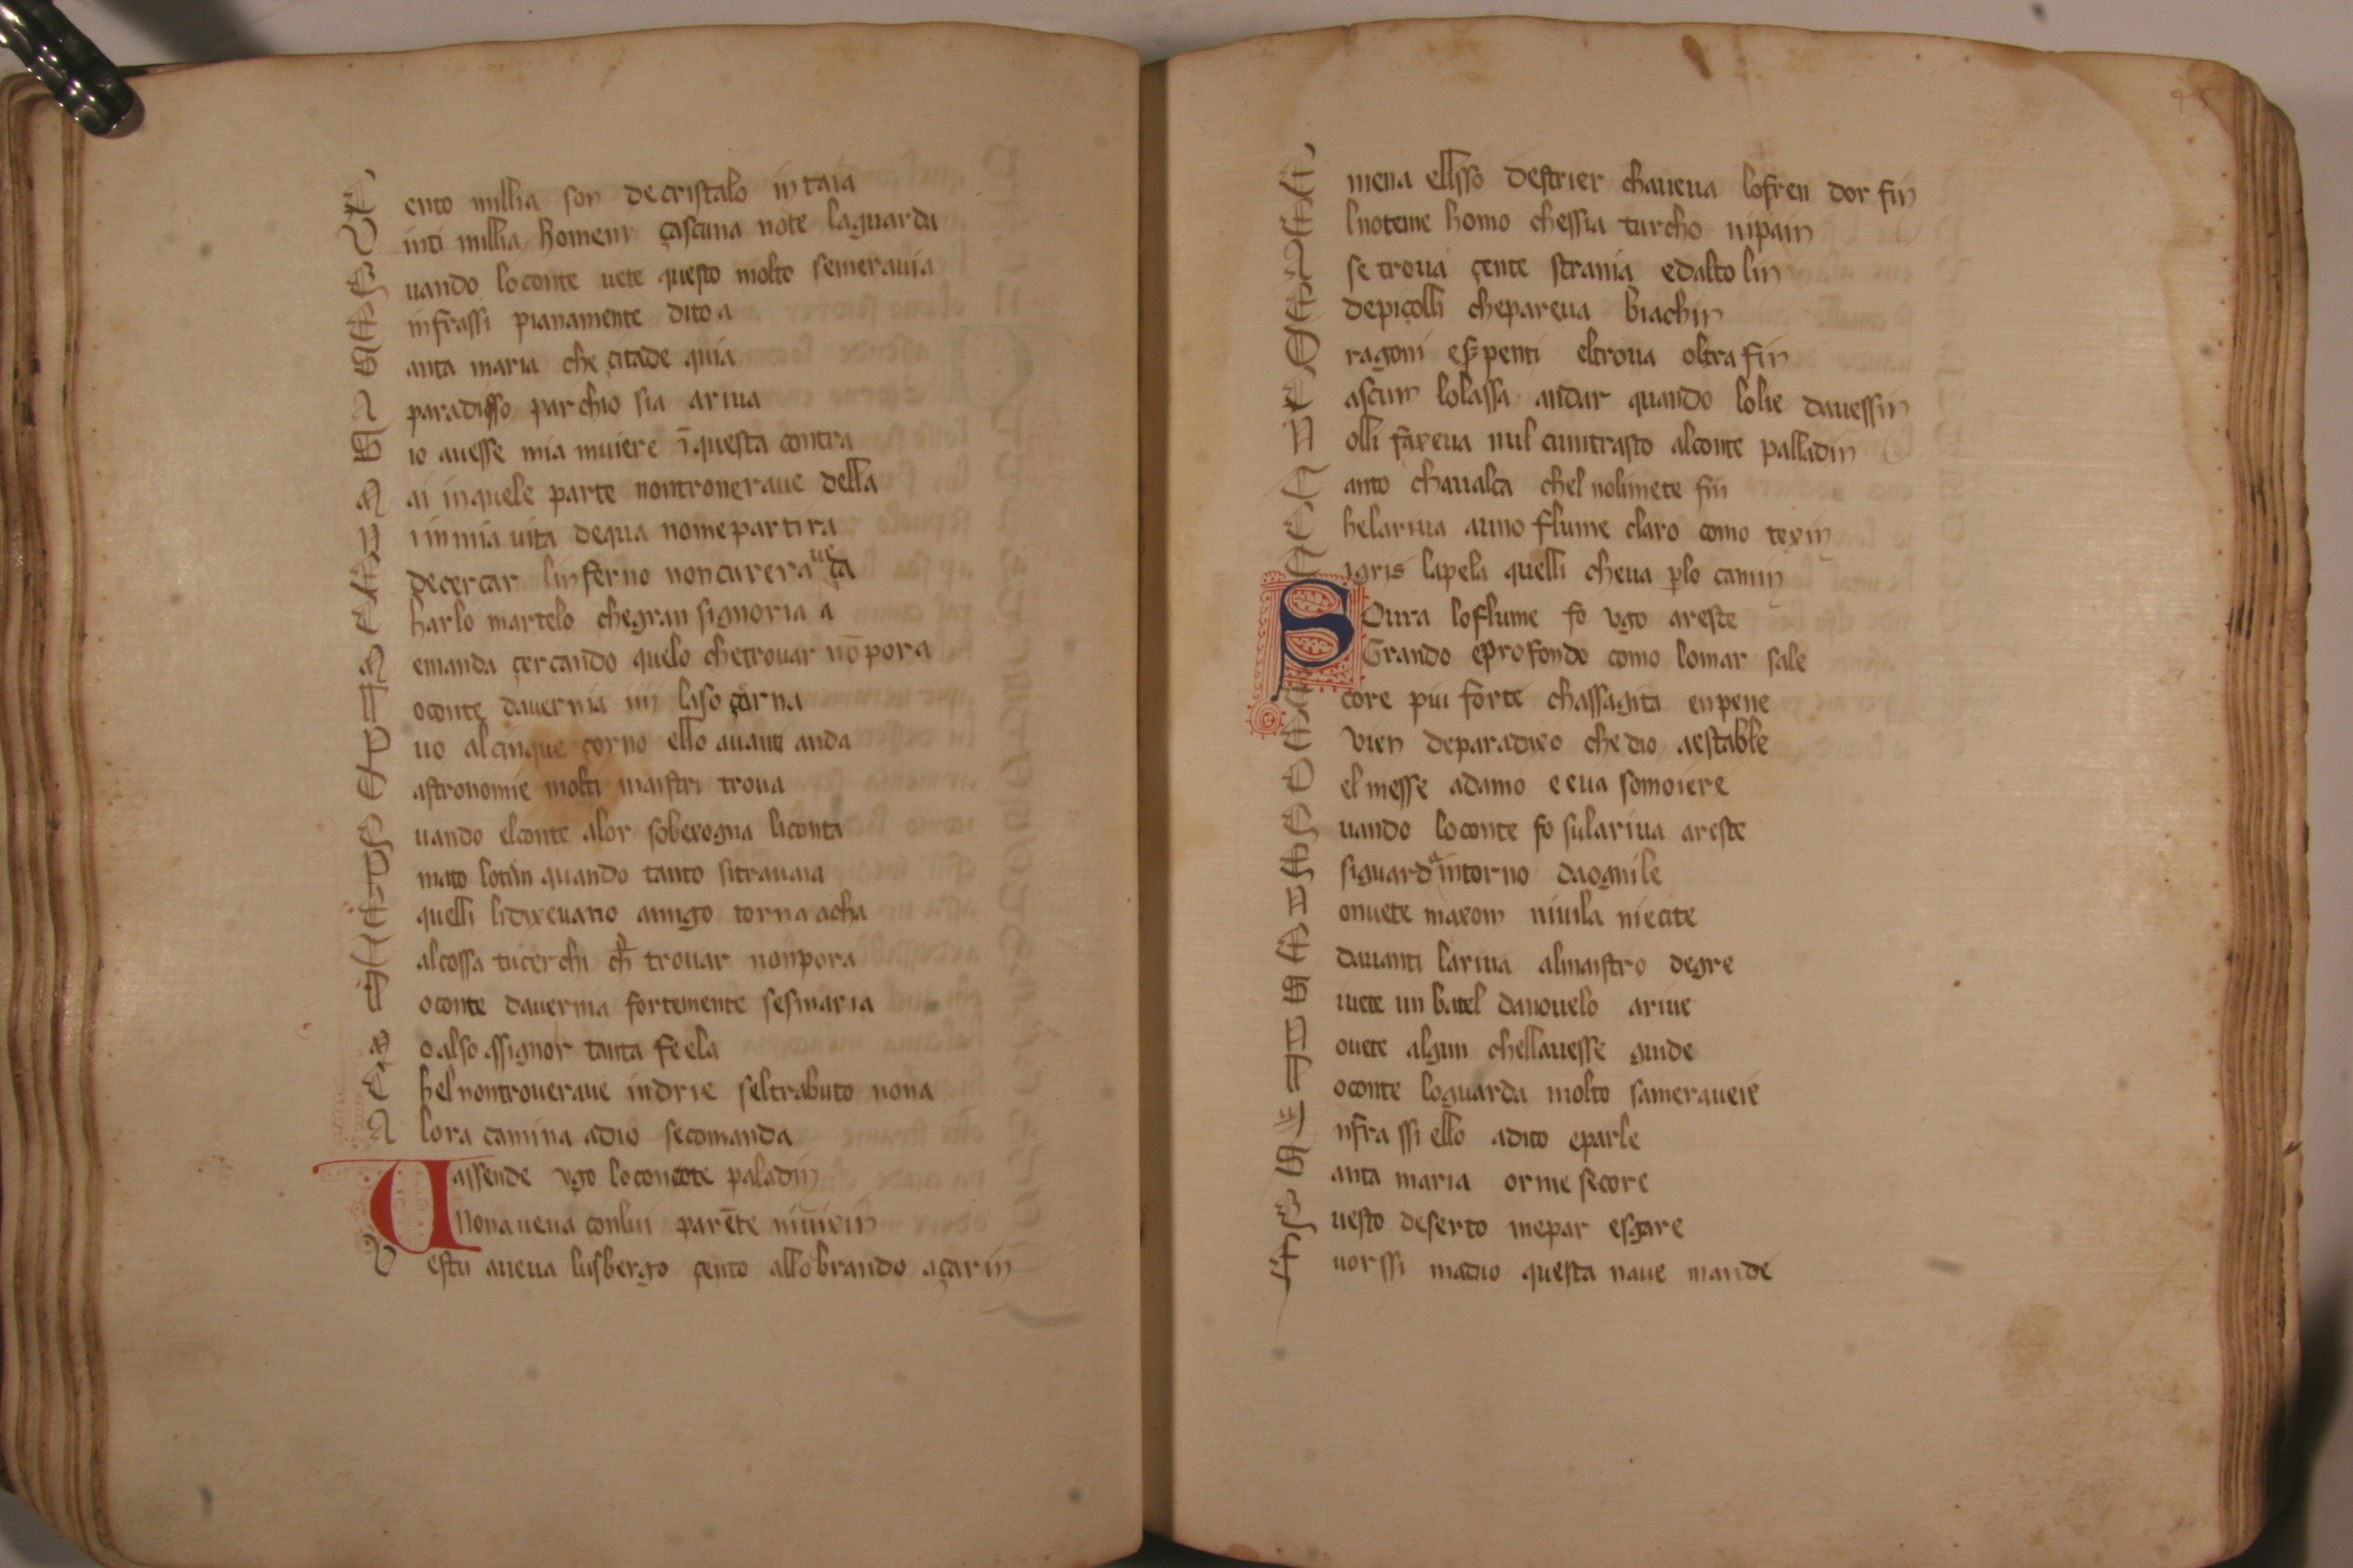 C ento millia son de cristalo in taia
V inti millia homeni çascuna note la guarda
Q uando lo conte uete questo molto se merauia
E infrassi pianamente dito a
S anta maria che çitade quia
A paradisso par chio sia ariua
S io auesse mia muiere ī questa contra
M ai in quele parte non troueraue della
N i in mia uita de qua nome partira
E de cercar linferno non curera ue ça
C harlo martelo che gran signoria a
M emanda çercando quelo che trouar nō pora
L o conte dauernia iii li so çorna
P uo al cinque çorno ello auanti anda
D astronomie molti maistri troua
Q uando el conte alor so bexogna li conta
P mato lotun quando tanto si trauaia
E quelli li dixeuano amigo torna acha
T al cossa tu cerchi ch̄ trouar non pora
L o conte dauernia fortemente se smaria
M o also assignor tanta fe ela
C hel non troueraue indrie sel trabuto nona
A lora camina adio se comanda
V assende vgo lo concote paladin
Nonaueua conlui parēte ni uixin
V estu aueua lusbergo çento allo brando açarin
E mena ellsso destrier chaueua lo fren dor fin
E luoteme homo chessia turcho ni pain
A se troua çente strania e dalto lin
E de piçolli che pareua biachin
D ragoni e sp̄penti el troua oltra fin
C ascun lo lassa andar quando lo lie dauessin
N olli faxeua nul cuntrasto al conte palladin
T anto chaualca chel no li mete fin
C hel ariua auno flume claro como texin
T igris lapela quelli che ua p̱ lo camin
S Oura lo flume fo vgo areste
Grando e profondo como lo mar sale
E core piu forte chassagita enpene
E vien de paradixo che dio aestable
O el messe adamo e eua so moiere
Q uando lo conte fo su la riua areste
E si guarda intorno da ogni le
N on uete maxom ni uila ni ecite
E dauanti la riua al maistro degre
S i uete un batel da nouelo ariue
N o uete algun chel lauesse guide
L o conte lo guarda molto sa meraueie
I nfra ssi ello a dito e parle
S anta maria or me secore
Q uesto deserto me par esgare
F uorssi ma dio questa naue mande